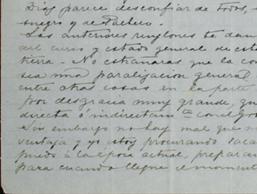 Diaz parece desconfiar de todos,
negro y de Pacheco.
Los anteriores renglones te dan
del curso y estado general de este
tierra. No extrañaras que la co
sea una paralización general
entre otras cosas en la parte
por desgracia muy grande, qu
directa ó indirectam te con el gro
Sin embargo no hay mal que n
ventaja y yo estoy procurando saca
puedo á la época actual, preparan
para cuando llegue el moment